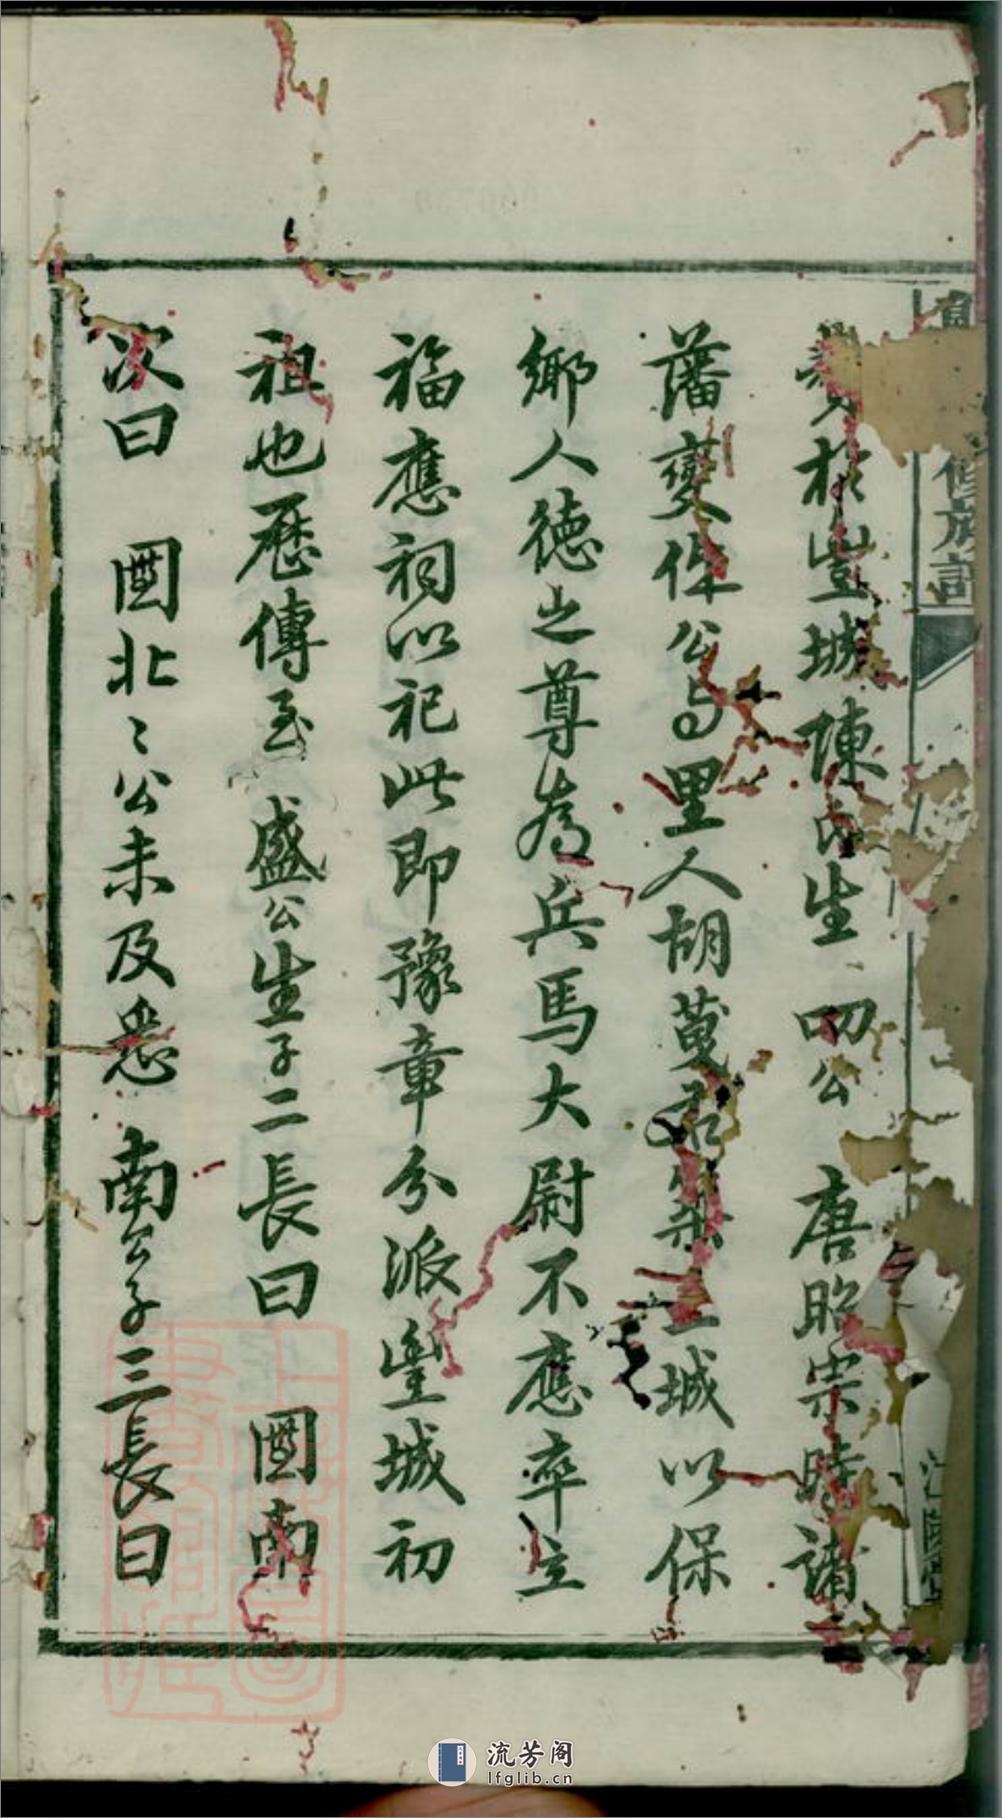 於豈城陳氏生 叨公 唐昭宗時諸
藩變作公与里人胡蓃君築土城以保
鄉人德之尊為兵馬大尉不應率立
福應祠以祀此即豫章分派豐城初
祖也歷傳至 盛公生子二長曰 圖南
次曰 圖北〻公未及悉 南公子三長曰
修族譜
流芳阁
lfglib.cn